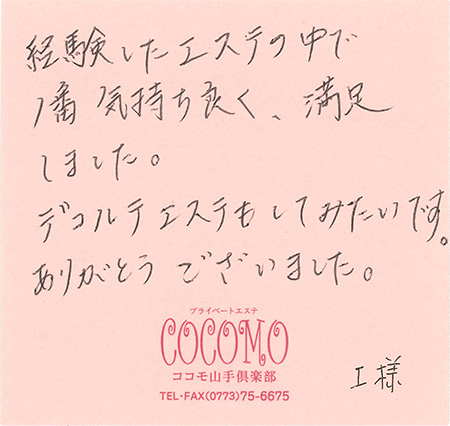 経験したエステの中で
1番 気持ち良く、満足
しました。
デコルテエステもしてみたいです。
ありがとうございました。
プライベートエステ
COCOMO
ココモ山手倶楽部
TEL・FAX(0773)75-6675
I様